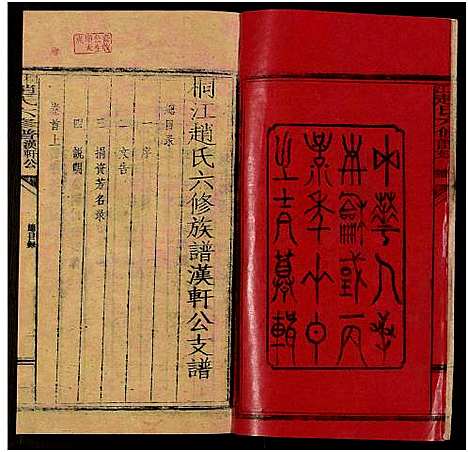 中華人民
共和國歲丙
寅年十月
之吉纂輯
桐江趙氏六修族譜漢軒公支譜
總目錄
一 序
二 文告
三 捐資芳名录
四 説明
卷首上
趙氏六修譜 漢軒公
總目錄